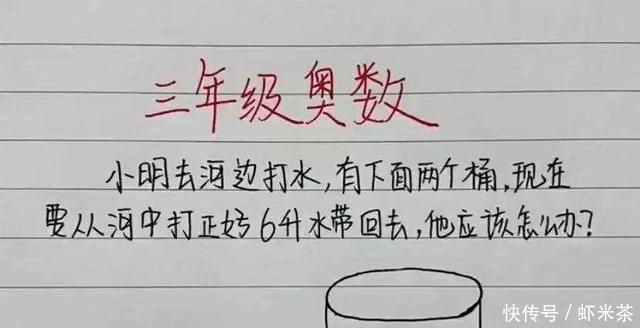 三年级奥数
小明去河边打水，有下面两个桶，现在
要从河中打正好6升水带回去，他应该怎么办？
快传号／虾米茶